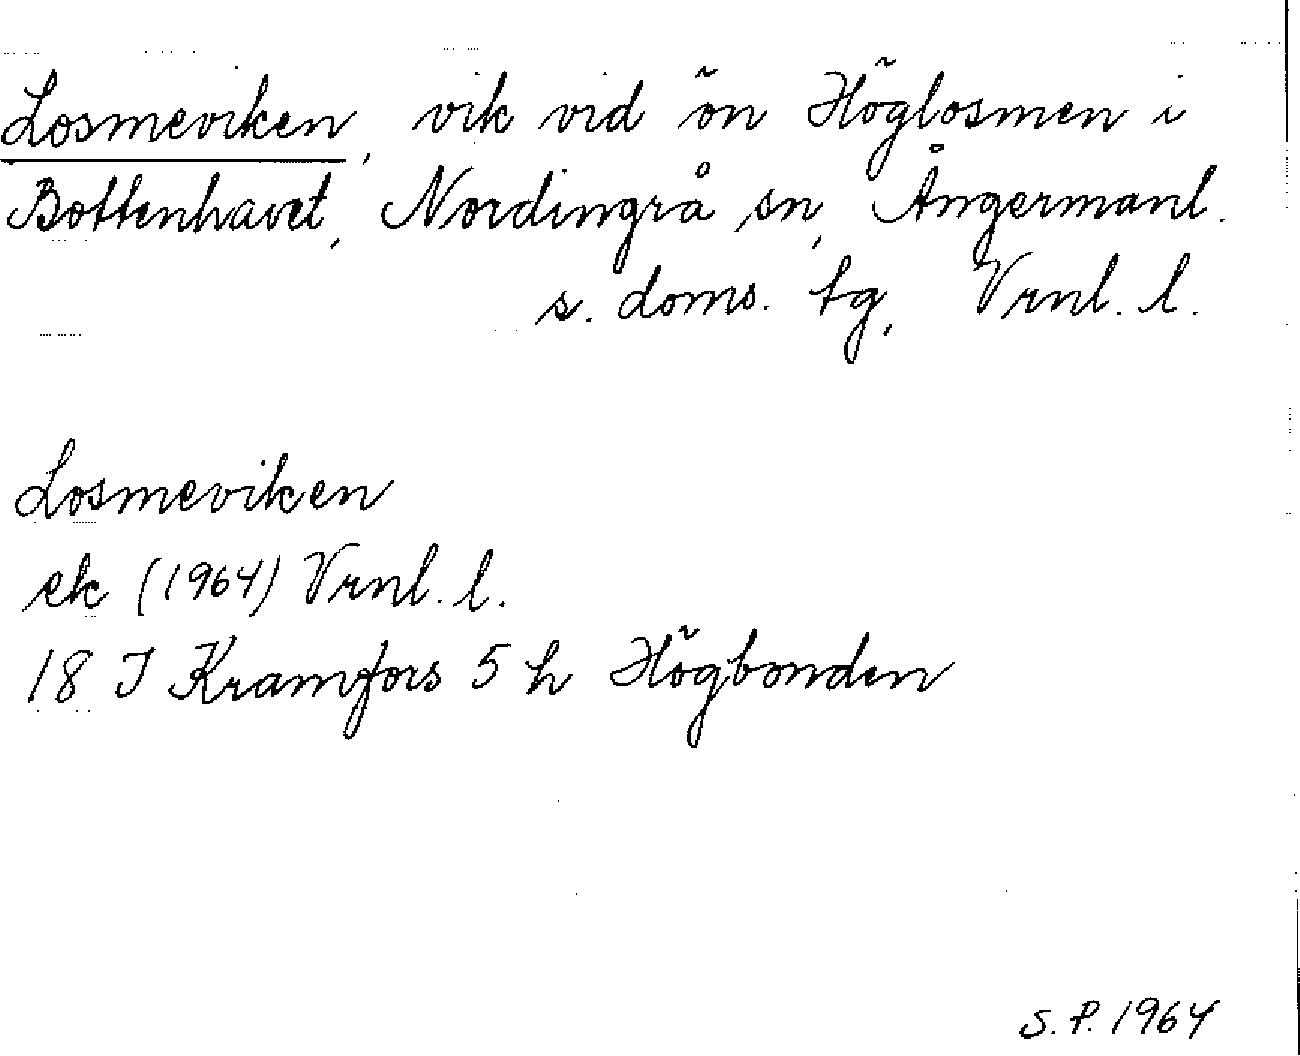 Losmeviken, vik vid ön Höglosmen i
Bottenhavet, Nordingrå sn, Ångermanl.
s. doms. tg, Vrnl. l.
Losmeviken
ek (1964) Vrnl. l.
18 I Kramfors 5 h Högbonden
S. P. 1964